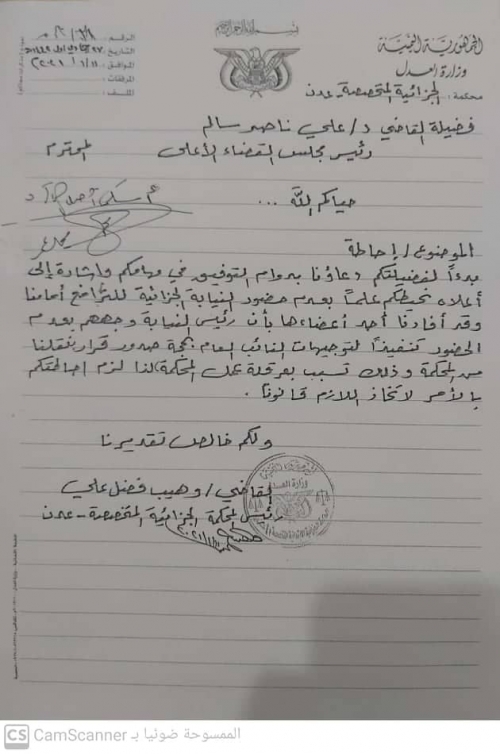 بسم الله الرحمن الرحيم
الجمهورية اليمنية
وزارة العدل
محكمة: الجزائية المتخصصة - عدن
الرقم:
التاريخ:
الموافق:
المرفقات:
الملف:
فضيلة القاضي د/ علي ناصر سالم
رئيس مجلس القضاء الأعلى المحترم
حياكم الله ...
الموضوع / إحاطة
بدءاً لفضيلتكم دعاؤنا بدوام التوفيق في مهامكم وإشارة إلى
أعلاه نحيطكم علماً بعدم حضور النيابة الجزائية للترافع أمامنا
وقد أفادنا أحد أعضاءها بأن رئيس النيابة وجههم بعدم
الحضور تنفيذاً لتوجيهات النائب العام بحجة صدور قرار بنقلنا
من المحكمة وذلك تسبب بعرقلة عمل المحكمة لذا لزم إحاطتكم
بالأمر لاتخاذ اللازم قانوناً.
ولكم خالص تقديرنا
القاضي / وهيب فضل علي
رئيس المحكمة الجزائية المتخصصة - عدن
CS CamScanner الممسوحة ضوئيا بـ